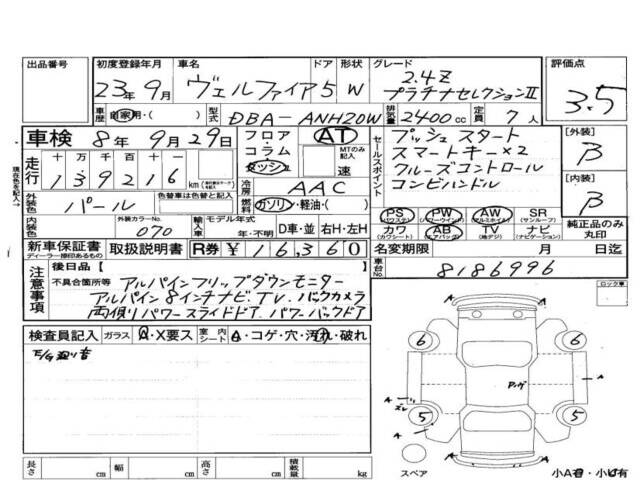 出品番号 初度登録年月 車名 ドア 形状 グレード 評価点
23年9月 ヴェルファイア 5 W 2.4Z
プラチナセレクションⅡ
3.5
車歴 自家用・( ) 型式 DBA-ANH20W 排気量 2400cc 定員 7人
車検 8年 9月 29日 フロア・コラム ダッシュ AT MTのみ記入 速
走行 十万千百十一 139216 km
現在色を記入→
冷房 AAC
セールスポイント
プッシュスタート
スマートキー×2
クルーズコントロール
コンビハンドル
[外装] B
[内装] B
外装色 パール 色替車は色替と記入 燃料 ガソリン・軽油・( )
外装カラーNo. 070 輸入車 モデル年式 年・不明 D車・並 右H・左H
PS (パワステ) PW (パワーウインドウ) AW (アルミホイル) SR (サンルーフ)
カワ (カワシート) AB (エアバッグ) TV (地デジ) ナビ (ナビゲーション)
純正品のみ丸印
新車保証書 ディーラー捺印あるもの 取扱説明書 R券 ¥16,360 名変期限 月 日迄
車台No. 8186996
注意事項 後日品[ ]
不具合箇所等 アルパインフリップダウンモニター
アルパイン8インチナビ、TV、バックカメラ
両側パワースライドドア、パワーバックドア
ロック車
検査員記入 ガラス A・X要ス 室内シート A・コゲ・穴・汚れ・破れ
E/G廻り音
6 6
A A A
5 5
A
A
スペア
長さ cm 幅 cm 高さ cm 積載量 kg
小A有・小U有